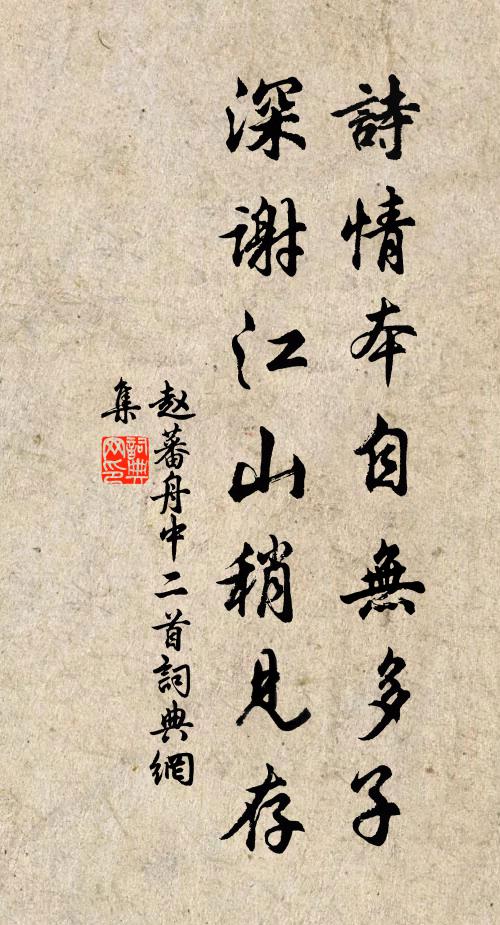 詩情本自無多子
深谢江山稍見存
赵蕃舟中二首詞典網
集
詞典网印